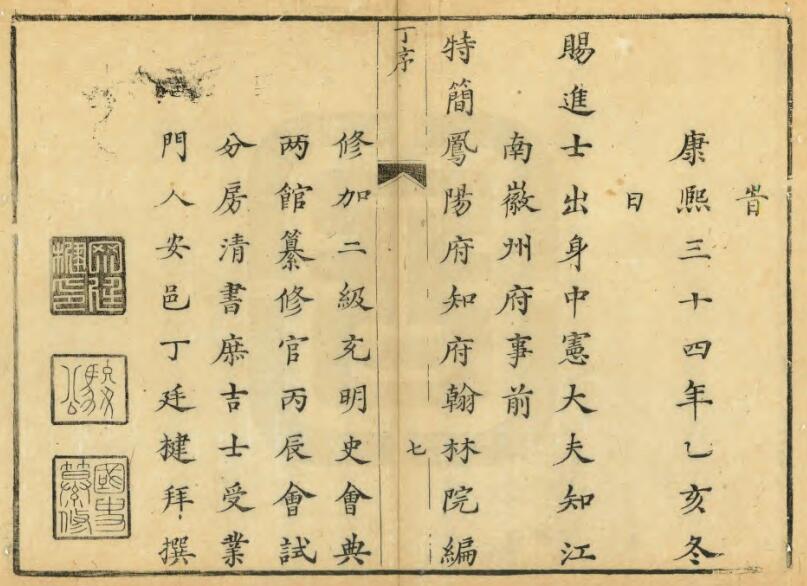 旹
康熙三十四年乙亥冬
日
賜進士出身中憲大夫知江
南徽州府事前
特簡鳳陽府知府翰林院編
丁序
七
修加二級充明史會典
两館纂修官丙辰會試
分房清書庶吉士受業
門人安邑丁廷楗拜撰
駿公
國史纂修